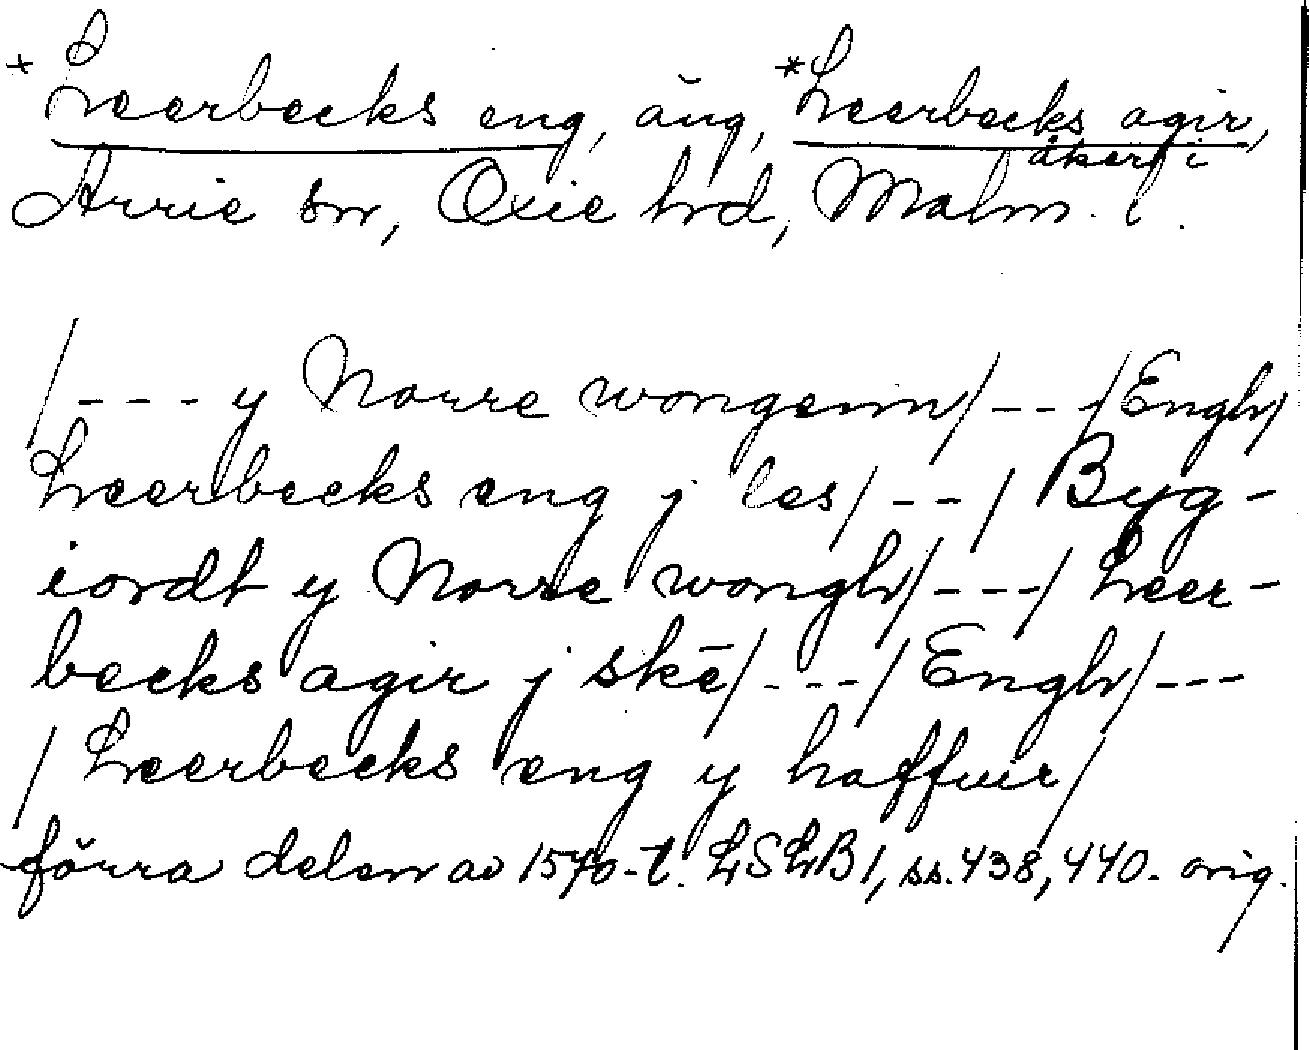 *Leerbecks eng, äng, *Leerbecks agir,
åker, i
Arrie sn, Oxie hrd, Malm. l.
/--- y Norre wongenn/---/Engh/
Leerbecks eng j les/--/ Byg-
iordt y Norre wongh/---/ Leer-
becks agir j skē/---/Engh/---
/Leerbecks eng y haffuir/
förra delen av 1570-t. LSLB1, ss. 438, 440. orig.